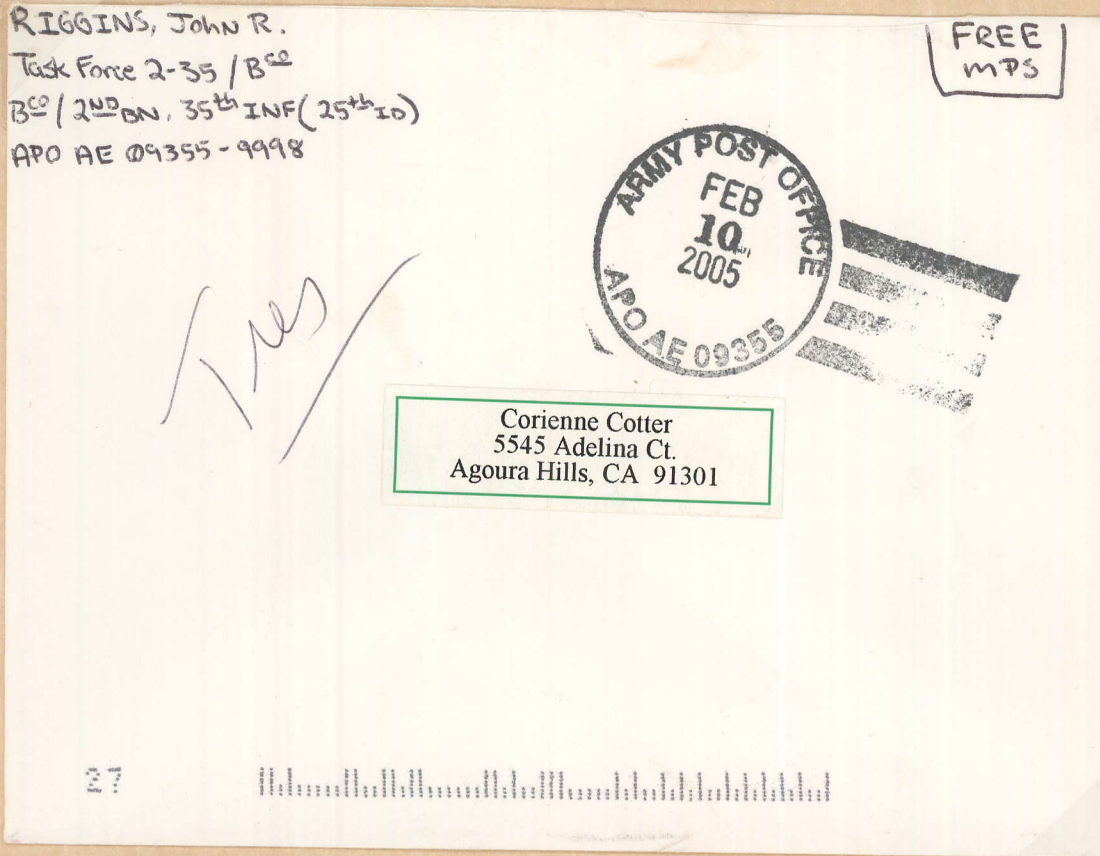 RIGGINS, JOHN R.
Task Force 2-35 / Bco
Bco / 2ND BN. 35th INF (25th ID)
APO AE 09355-9998
FREE
MPS
ARMY POST OFFICE
FEB
10
2005
APO AE 09355
Tres
Corienne Cotter
5545 Adelina Ct.
Agoura Hills, CA 91301
27